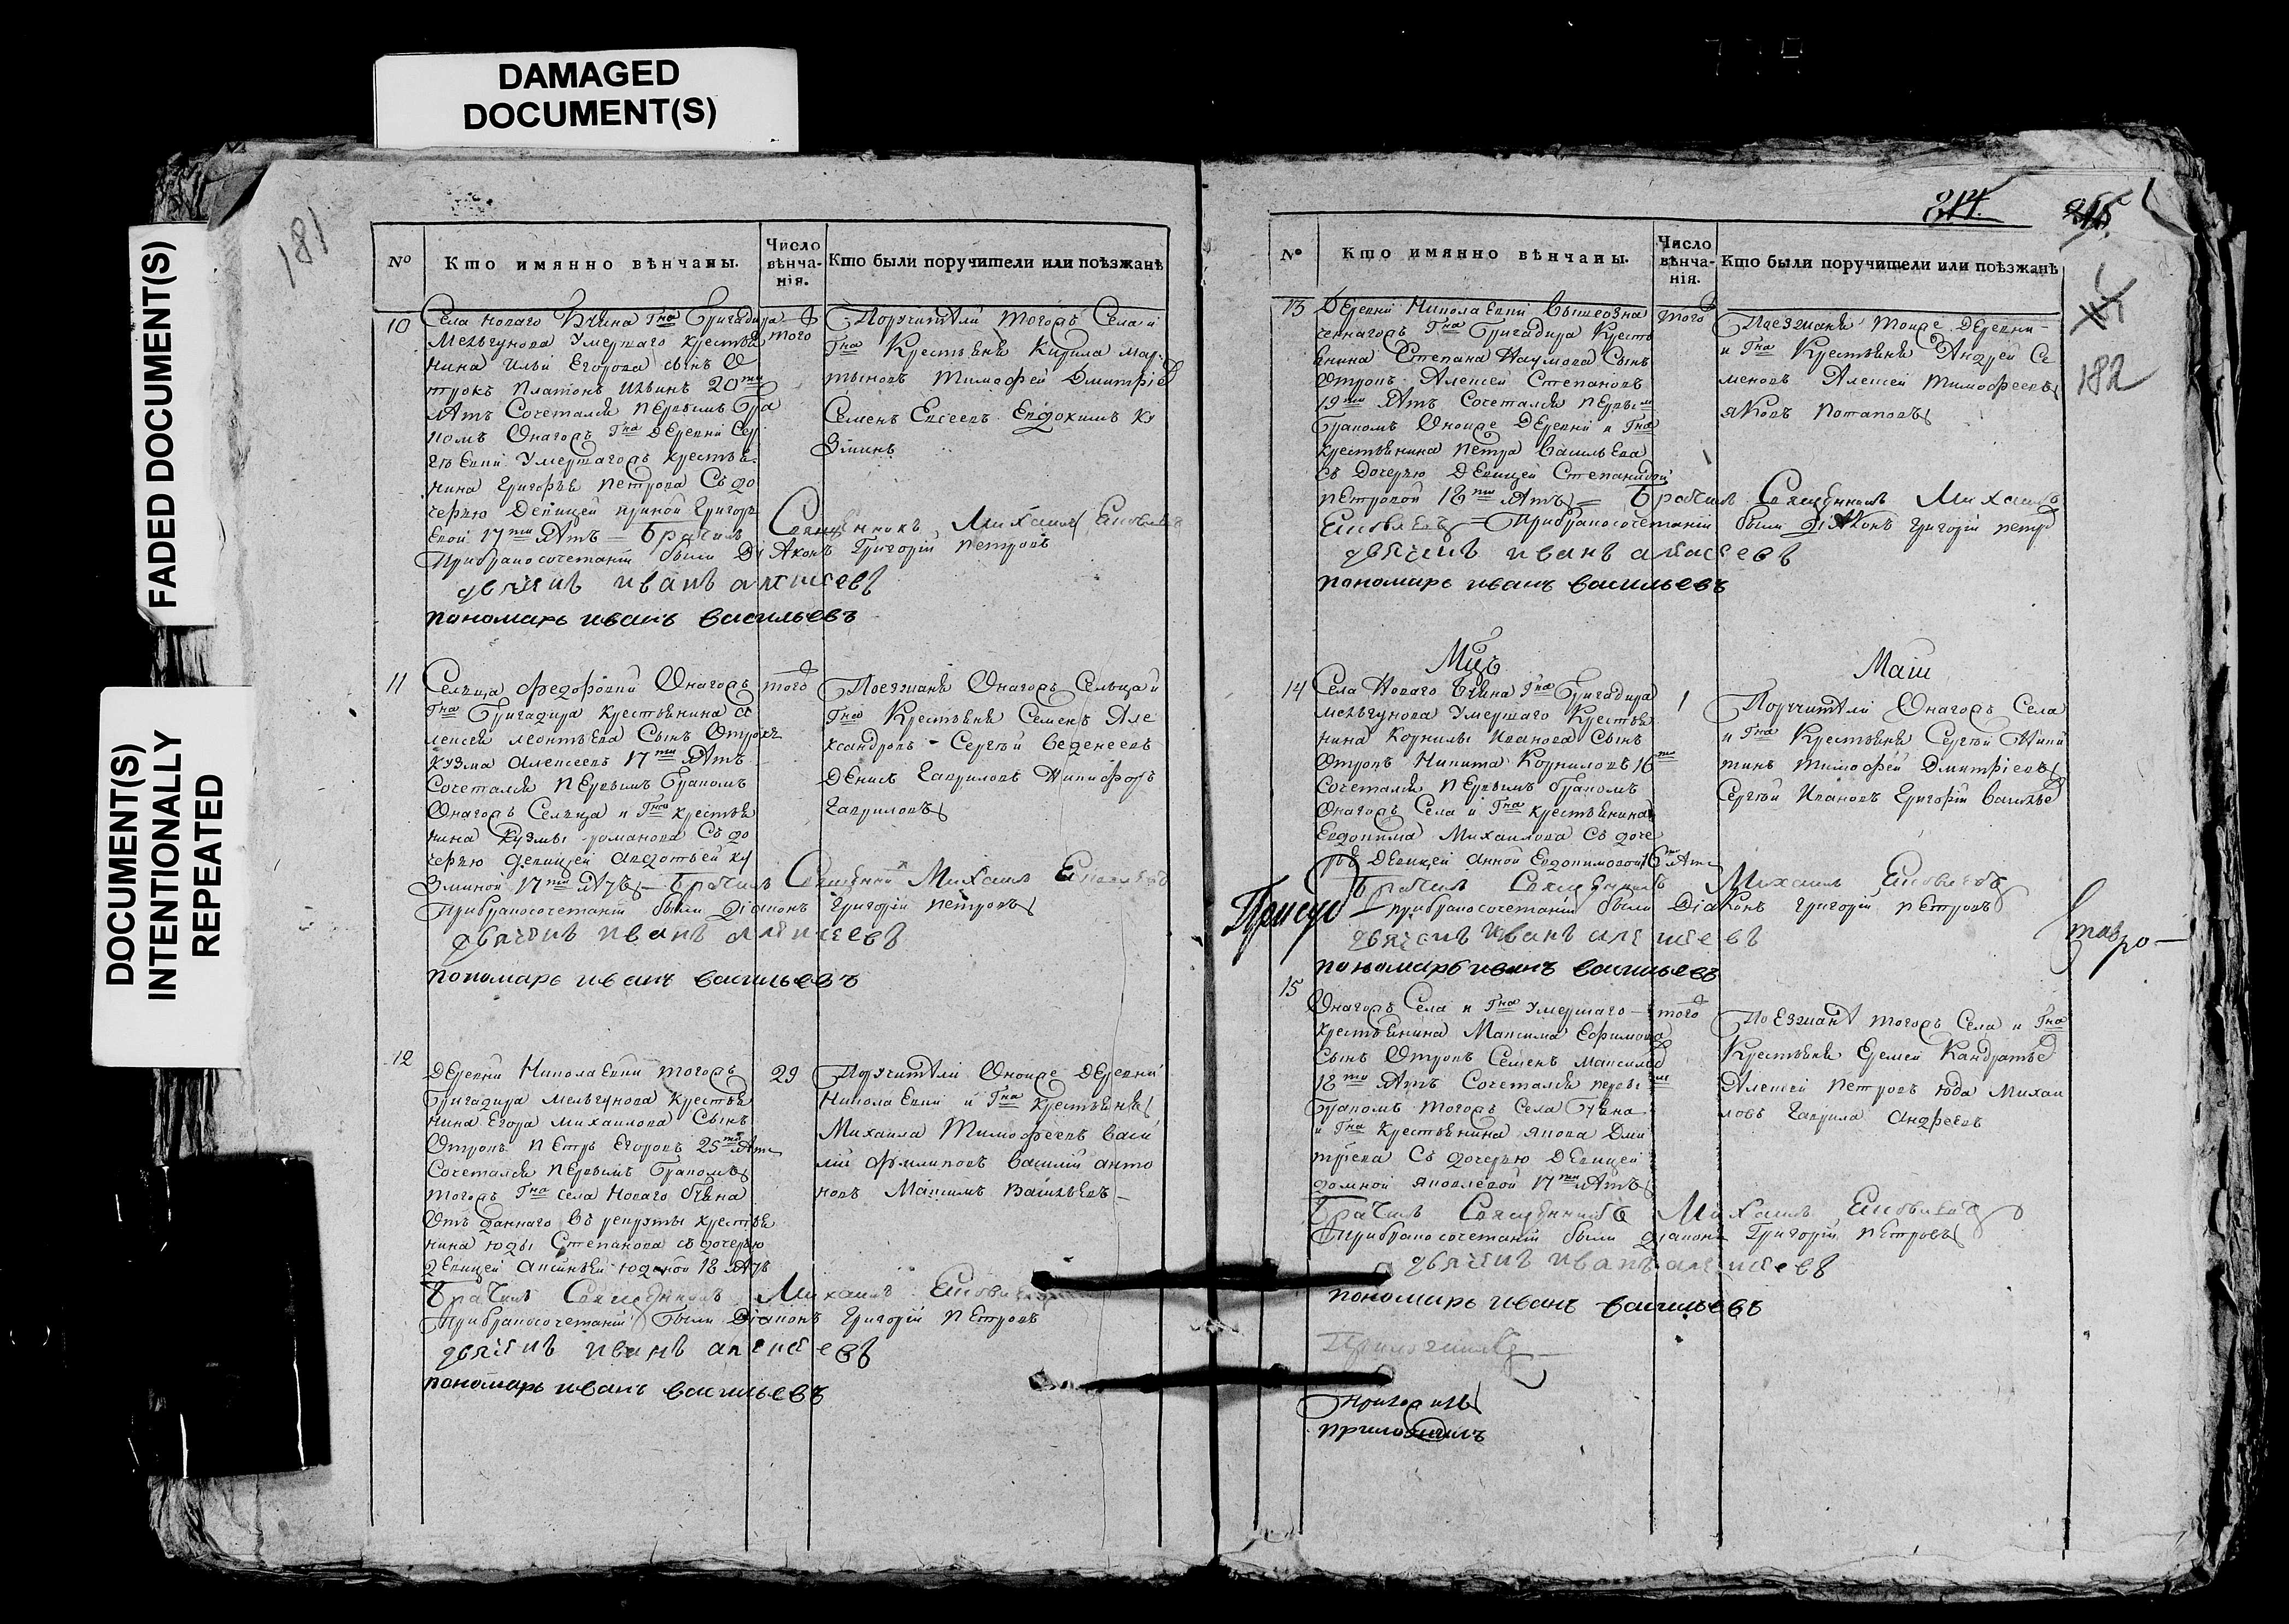 DAMAGED
DOCUMENT(S)
FADED DOCUMENT(S)
DOCUMENT(S)
INTENTIONALLY
REPEATED
181
№
Кто имянно вѣнчаны.
Число
вѣнча-
нія.
Кто были поручители или поѣзжанѣ
10
Села Новаго Гна Бригадира
Мельгунова Умершаго крестья
нина Ильи Егорова сынъ О
трокъ Платонъ Ильинъ 20ти
лѣтъ Сочетался первымъ бра
комъ Онагожъ Гна Деревни Сер
гѣевки Умершагожъ крестья
нина Григорья Петрова Съ до
черью Девицей Ириной Григорь
евой 17ти лѣтъ = Брачилъ Священникъ Михаилъ
Прибракосочетаніи были Діаконъ Григорій Петровъ
иванъ алексеевъ
пономарь иванъ васильевъ
того
Поручители тогожъ Села и
Гна Крестьяне Кирила Мар
тыновъ Тимофей Дмитріев
Семенъ Евсеевъ Евдокимъ Ку
зминъ
11
Сельца Федоровки Онагожъ
Гна Бригадира крестьянина А
лексея Леонтьева Сынъ Отрокъ
Кузма Алексеевъ 17ти лѣтъ
Сочетался первымъ бракомъ
Онагожъ Сельца и Гна крестья
нина Кузмы Романова Съ до
черью девицей Авдотьей Ку
зминой 17ти лѣтъ = Брачилъ Священникъ Михаилъ
Прибракосочетаніи были Діаконъ Григорій Петровъ
иванъ алексеевъ
пономарь иванъ васильевъ
того
Поезжаня Онагожъ Сельца и
Гна Крестьяне Семенъ Але
ксандровъ - Сергѣй Веденеевъ
Денисъ Гавриловъ Никифоръ
Гавриловъ
12
Деревни Николаевки тогожъ
Бригадира Мельгунова Крестья
нина Егора Михаилова Сынъ
Отрокъ Петръ Егоровъ 25ти лѣтъ
Сочетался первымъ бракомъ
тогожъ Гна села Новаго
Отъ даннаго въ рекруты крестья
нина Юды Степанова съ дочерью
девицей Аксиньей Юдовой 18 лѣтъ
Брачилъ Священникъ Михаилъ
Прибракосочетаніи были Діаконъ Григорій Петровъ
иванъ алексеевъ
пономарь иванъ васильевъ
29
Поручители Оноиже Деревни
Николаевки и Гна крестьяне
Михаила Тимофеевъ Васи
лій Филиповъ Василій Анто
новъ Максимъ Васильевъ
214.
182
№
Кто имянно вѣнчаны.
Число
вѣнча-
нія.
Кто были поручители или поѣзжанѣ
13
Деревни Николаевки Вышеозна
ченнагожъ Гна Бригадира Кресть
янина Степана Наумова Сынъ
Отрокъ Алексей Степановъ
19ти лѣтъ Сочетался первымъ
бракомъ Оноиже Деревни и Гна
крестьянина Петра Васильева
съ Дочерью Девицей Степанидой
Петровой 18ти лѣтъ = Брачилъ Священникъ Михаилъ
Прибракосочетаніи были Діаконъ Григорій Петров
иванъ алексеевъ
пономарь иванъ васильевъ
того
Поезжаня Тоиже Деревни
и Гна Крестьяне Андрей Се
меновъ Алексей Тимофеевъ
Яковъ Потаповъ
Мцъ
Маій
14
Села Новаго Гна Бригадира
Мельгунова Умершаго Крестья
нина Корнилы Иванова Сынъ
Отрокъ Никита Корниловъ 16ти
Сочетался первымъ бракомъ
Онагожъ Села и Гна крестьянина
Евдокима Михаилова Съ доче
рью Девицей Анной Евдокимовой 16ти лѣтъ
Брачилъ Священникъ Михаилъ
прибракосочетаніи были Діаконъ Григорій Петровъ
иванъ алексеевъ
пономарь иванъ васильевъ
1
Поручители Онагожъ Села
и Гна Крестьяне Сергѣй Ники
тинъ Тимофей Дмитріевъ
Сергѣй Ивановъ Григорій Василье
15
Онагожъ Села и Гна Умершаго
крестьянина Максима Ефимова
Сынъ Отрокъ Семенъ Максимов
18ти лѣтъ Сочетался первы
бракомъ тогожъ Села
и Гна Крестьянина Якова Дми
тріева Съ дочерью Девицей
Домной Яковлевой 17ти лѣтъ
Брачилъ Священникъ Михаилъ
Прибракосочетаніи были Діаконъ Григорій Петровъ
иванъ алексеевъ
пономарь иванъ васильевъ
того
Поезжаня тогожъ Села и Гна
Крестьяне Еремей Кандратье
Алексей Петровъ Юда Михаи
ловъ Гаврила Андреевъ